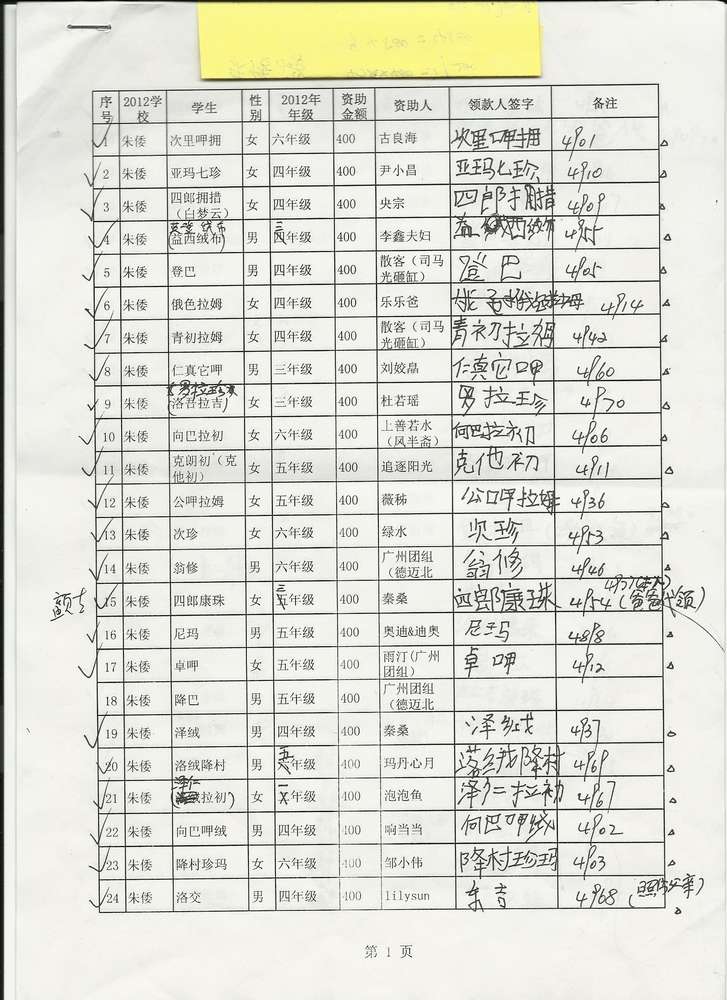 序号 2012学校 学生 性别 2012年年级 资助金额 资助人 领款人签字 备注
1 朱倭 次里呷拥 女 六年级 400 古良海 次里呷拥 4901
2 朱倭 亚玛七珍 女 四年级 400 尹小昌 亚玛七珍 4910
3 朱倭 四郎拥措（白梦云） 女 四年级 400 央宗 四郎拥措 4909
4 朱倭 益西绒布 男 三 四年级 400 李鑫夫妇 4955
5 朱倭 登巴 男 四年级 400 散客（司马光砸缸） 登巴 4905
6 朱倭 俄色拉姆 女 四年级 400 乐乐爸 4914
7 朱倭 青初拉姆 女 四年级 400 散客（司马光砸缸） 青初拉姆 4942
8 朱倭 仁真它呷 男 三年级 400 刘姣晶 仁真它呷 4960
罗拉珍
9 朱倭 (洛吾拉吉) 女 三年级 400 杜若瑶 罗拉珍 4970
10 朱倭 向巴拉初 女 六年级 400 上善若水（风半斋） 向巴拉初 4906
11 朱倭 克朗初（克他初） 女 五年级 400 追逐阳光 克他初 4911
12 朱倭 公呷拉姆 女 五年级 400 薇秭 公呷拉姆 4936
13 朱倭 次珍 女 六年级 400 绿水 次珍 4953
14 朱倭 翁修 男 六年级 400 广州团组（德迈北 翁修 4946
15 朱倭 四郎康珠 女 三 五年级 400 秦桑 四郎康珠 4954
16 朱倭 尼玛 男 五年级 400 奥迪&迪奥 尼玛 4898
17 朱倭 卓呷 女 五年级 400 雨汀(广州团组） 卓呷 4912
18 朱倭 降巴 男 五年级 400 广州团组（德迈北
19 朱倭 泽绒 男 四年级 400 秦桑 泽绒 4937
20 朱倭 洛绒降村 男 五 年级 400 玛丹心月 洛绒降村 4969
泽仁
21 朱倭 拉初 女 一 年级 400 泡泡鱼 泽仁拉初 4967
22 朱倭 向巴呷绒 男 四年级 400 响当当 向巴呷绒 4902
23 朱倭 降村珍玛 女 六年级 400 邹小伟 降村珍玛 4903
24 朱倭 洛交 男 四年级 400 lilysun 4968
第 1 页